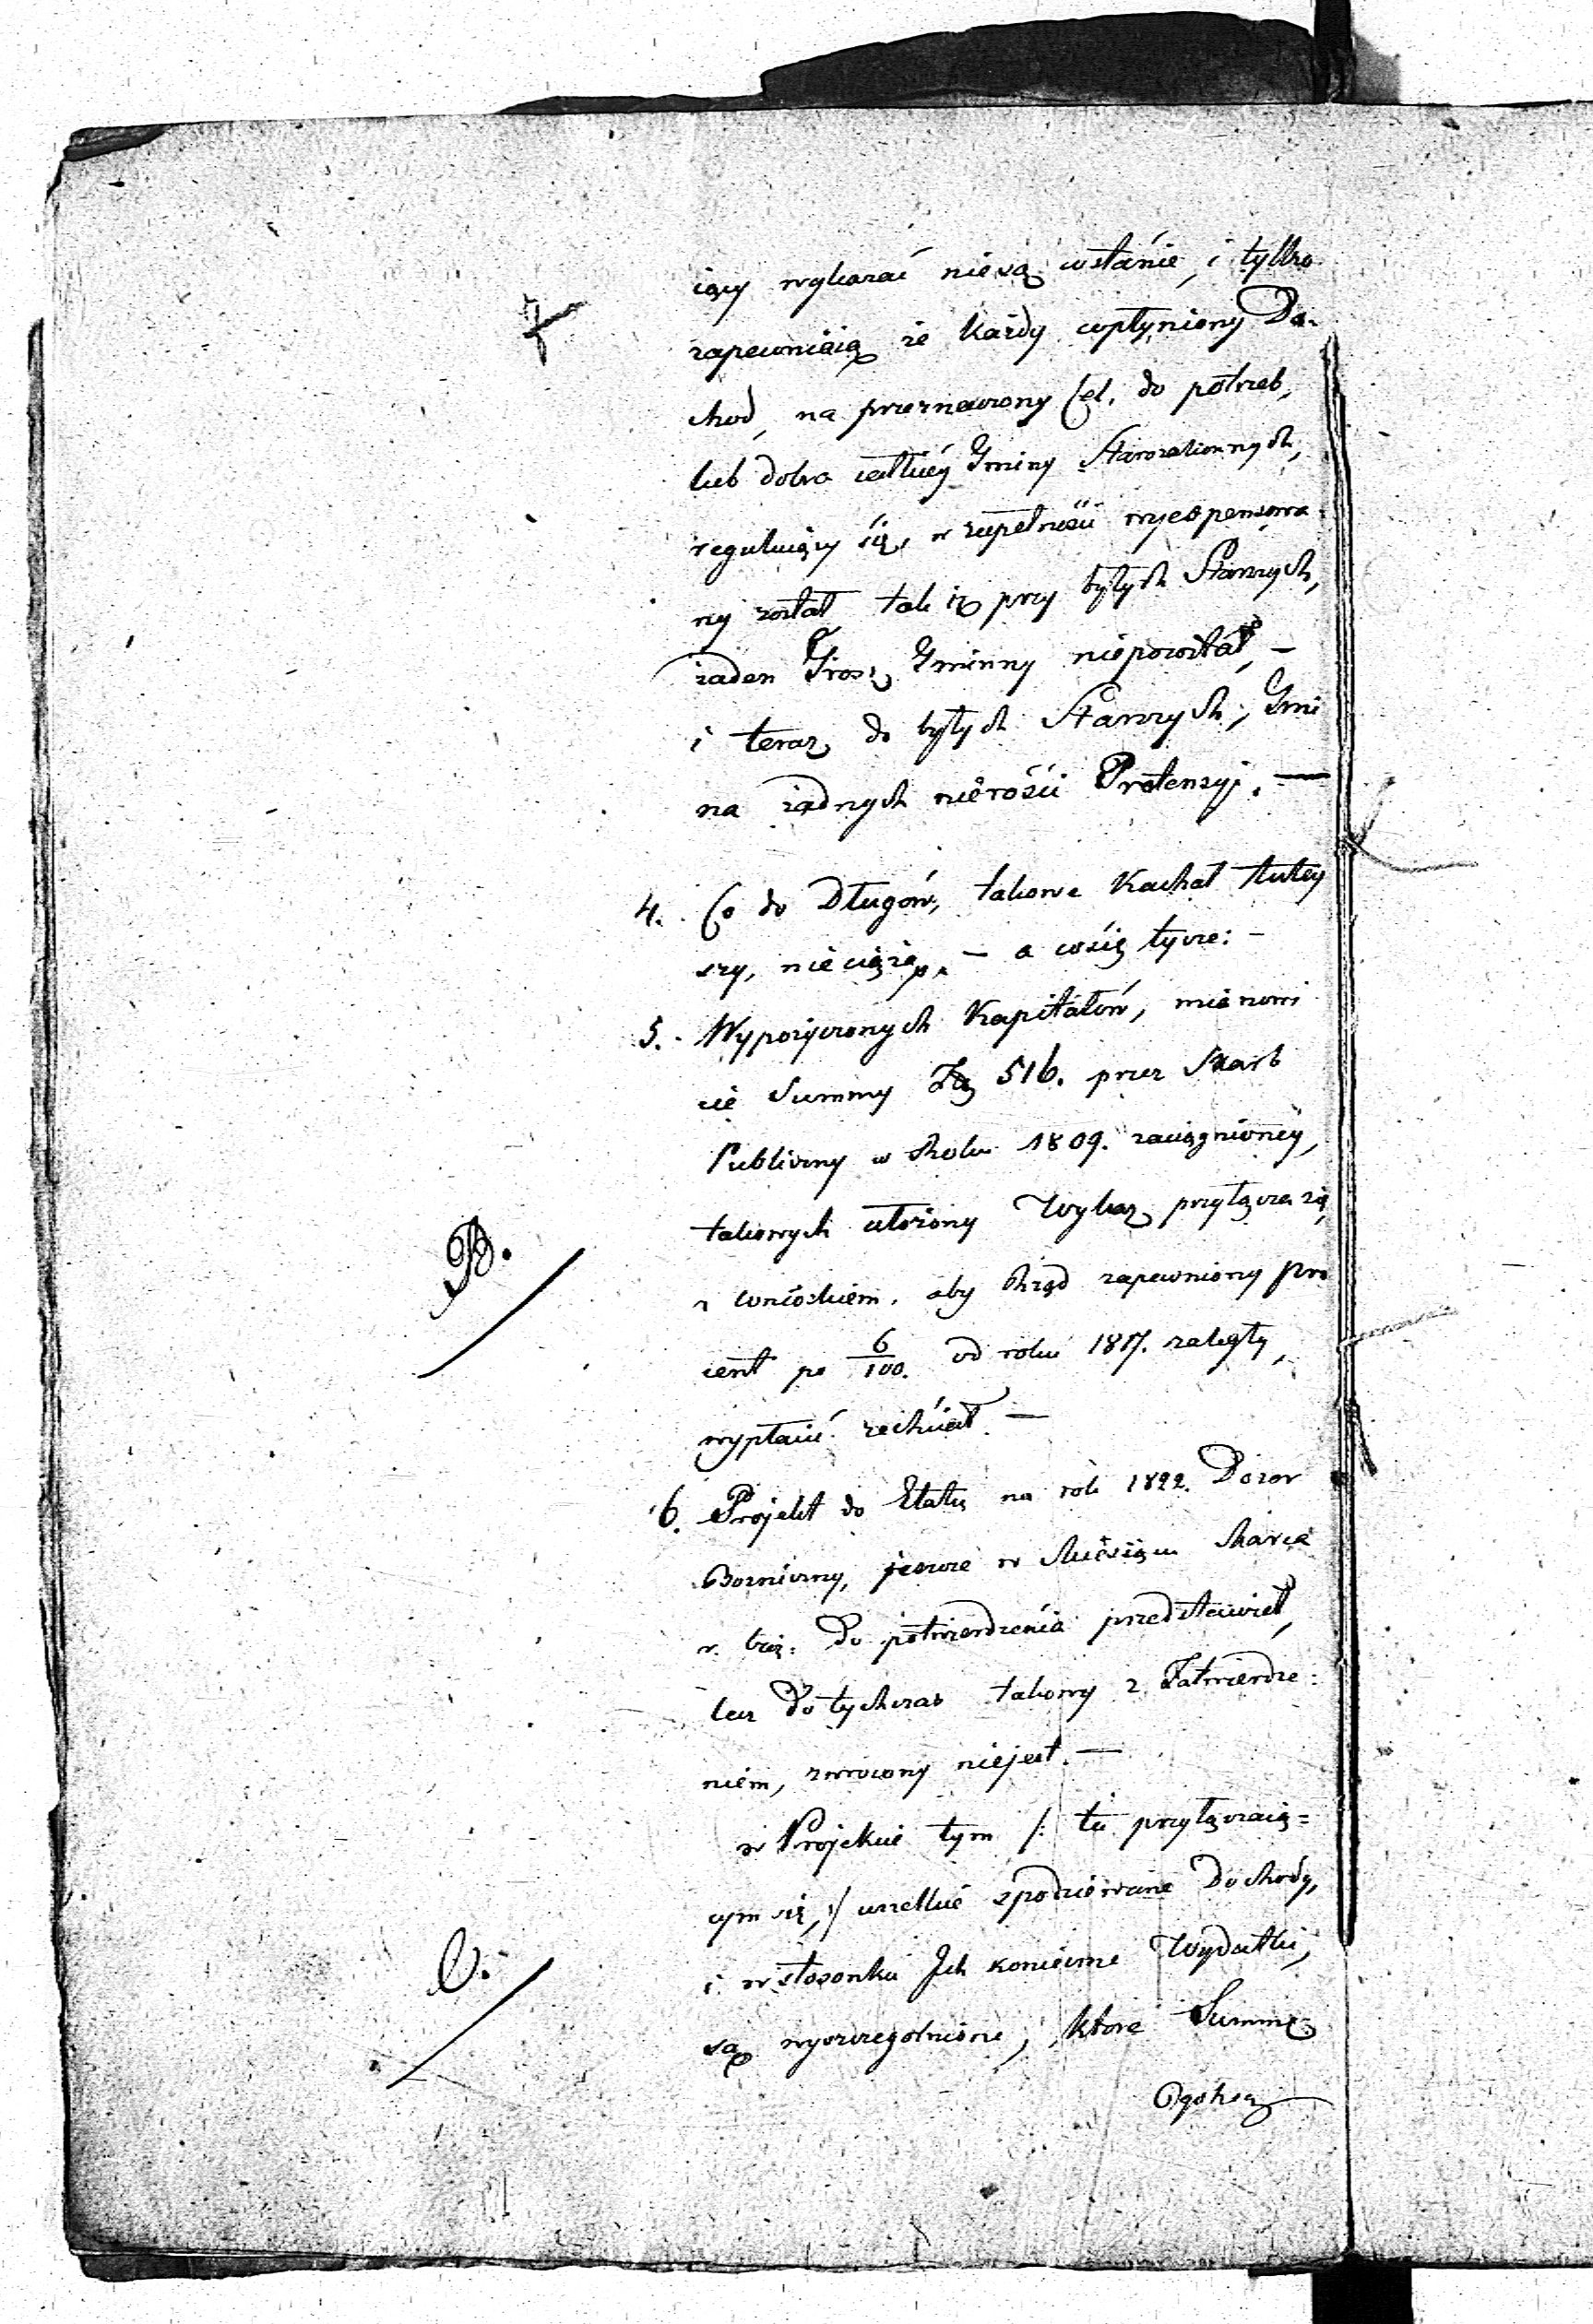 iący wykazać niesą wstánie, i tylko
zapewniaią że każdy wpłyniony Do-
chod, na przeznaczony Cel, do potrzeb,
lub dobra całkiéy Gminy Starozakonnych,
reguluiący się, w zupełności wyexpensowa
ny został tak iż przy byłych Starszych,
żaden Grosz Gminny niepozostał, —
i teraz do byłych Starszych, Gmi
na żadnych nierości Pretensyi. —
4. Co do Długów, takowe Kachał tutey
szy, nieciążą. — a cosię tycze: —
5. Wypożyczonych Kapitałów, mianowi
cie Summy Zł 516. przez Skarb
Publiczny w Roku 1809. zaciągnioney,
takowych ułożony Wykaz przyłącza się
B.
z wnioskiem, aby Rząd zapewniony pro
cent po 6/100. od roku 1817. zaległy,
wypłacić zechciał. —
6. Projekt do Etatu na rok 1822. Dozor
Bożniczny, jeszcze w Miesiącu Marca
r. bież: do potwierdzenia przedstawił,
lecz Dotychczas takowy z Zatwierdze:
niem, zwrocony niejest. —
w Projekcie tym /: tu przyłączaią=
cym się, :/ wszelkie spodziewane Dochody,
C.
i w stosonku Ich konieczne Wydatki,
są wyszczegolnione, ktore Summę